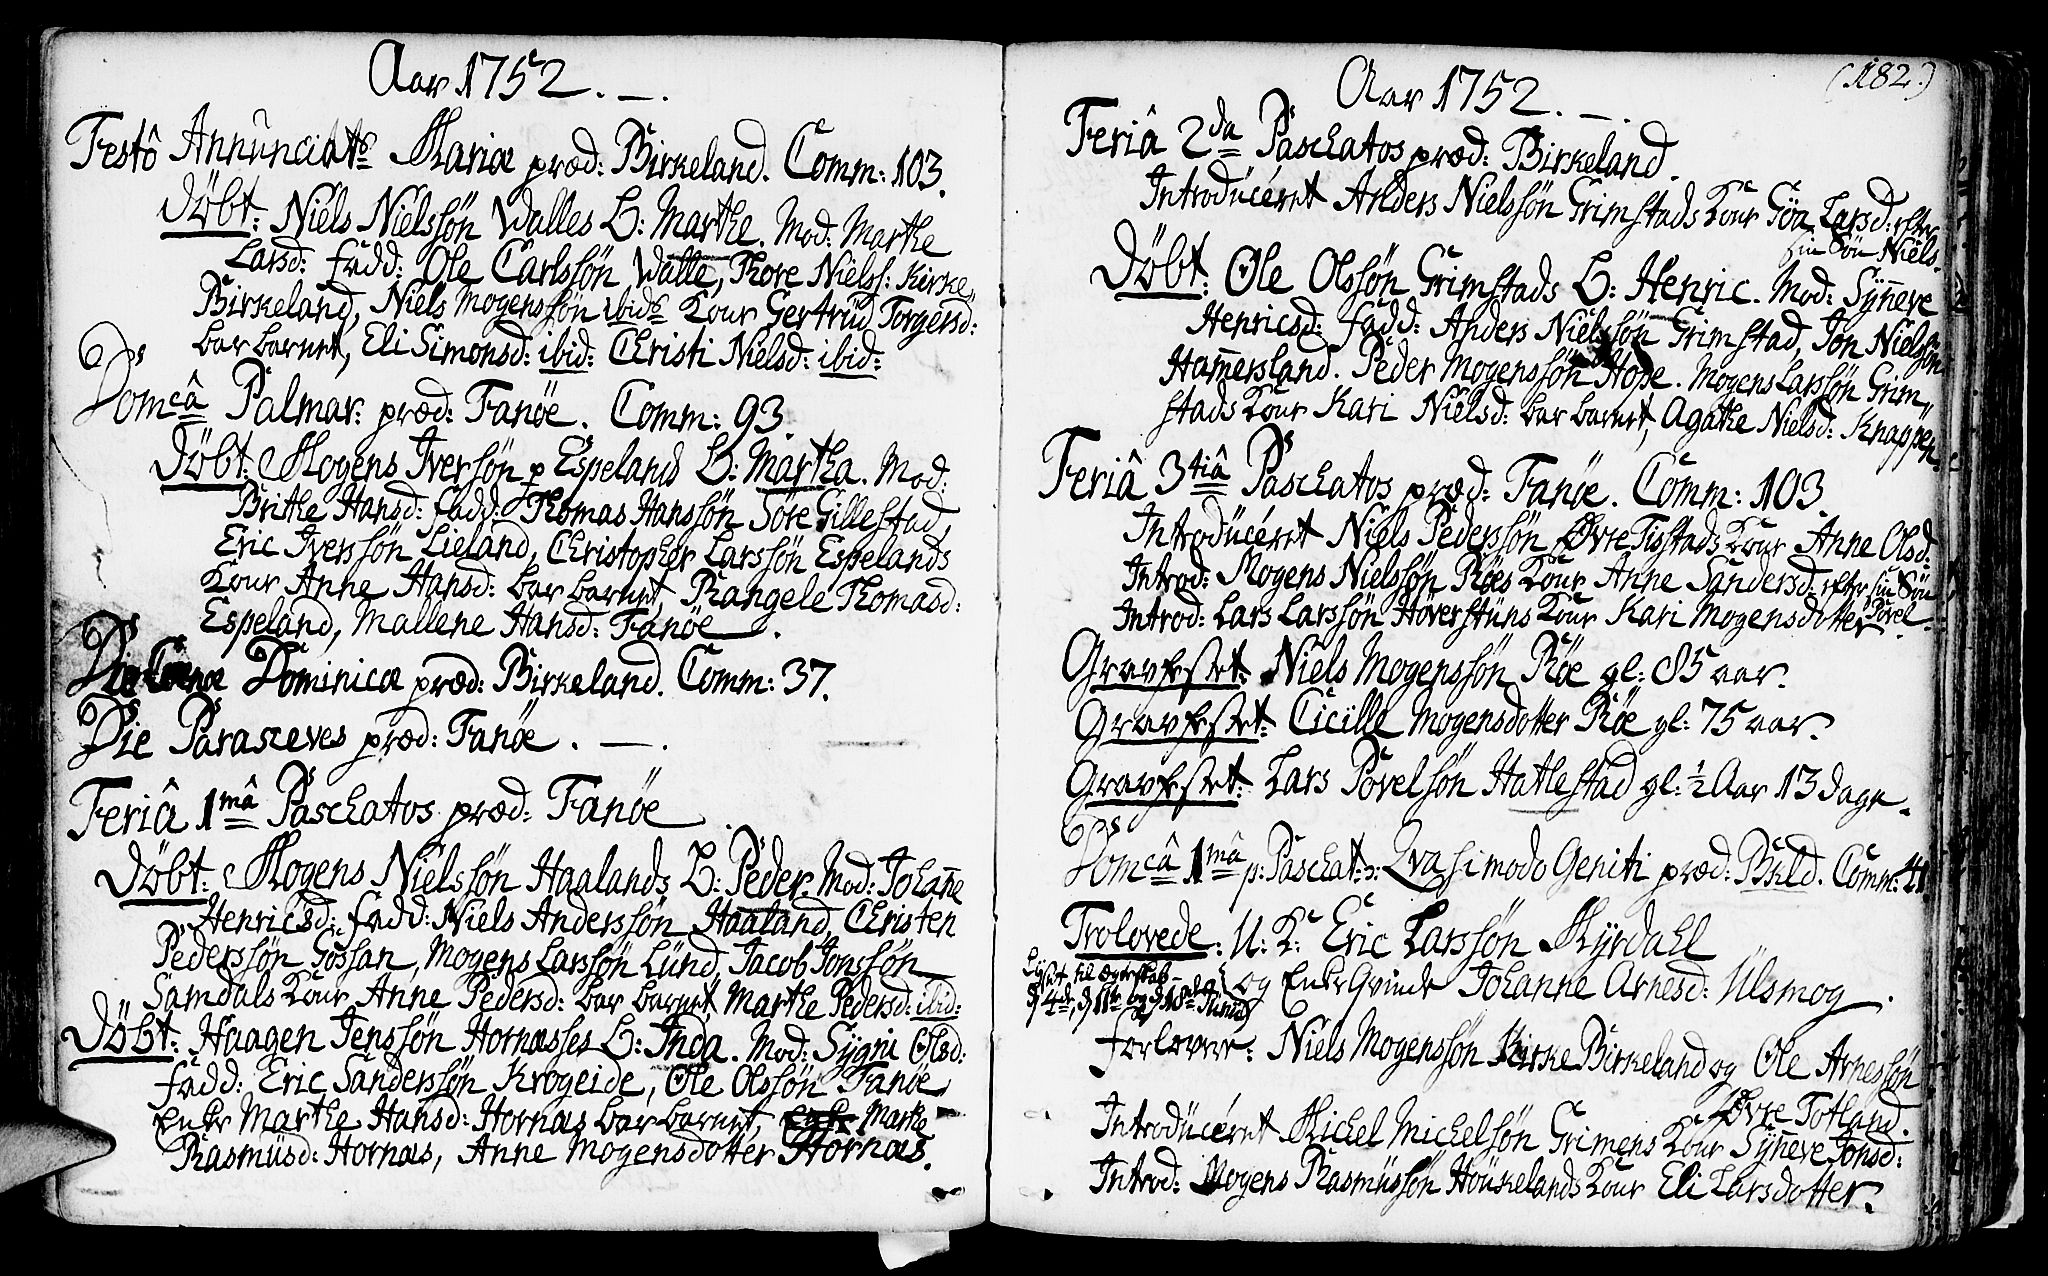 Aar 1752.
Festô Annunciat: Mariæ præd: Birkeland. Comm: 103.
Döbt: Niels Nielssön Walles B: Marthe. Mod: Marthe
Larsd: fadd: Ole Carlssön Walle, Thore Niels: Kirke
Birkeland, Niels Mogenssön ibid: Kone Gertrud Torgersd:
bar barnet, Eli Simonsd: ibid: Christi Nielsd: ibid:
Domcâ Palmar: præd: Fanöe. Comm: 93.
Döbt: Mogens Iversön Espeland B: Martha. Mod:
Brithe Hansd: fadd: Thomas Hanssön Söre Gillestad,
Eric Iverssön Lieland, Christopher Larssön Espelands
Kone Anne Hansd: bar barnet, Rangele Thomasd:
Espeland, Mallene Hansd: Fanöe.
Die Cænæ Dominicæ præd: Birkeland. Comm: 37.
Die Parasceves præd: Fanöe.
Feriâ 1mâ Paschatos præd: Fanöe
Döbt: Mogens Nielssön Haalands B: Peder. Mod: Johañe
Henricsd: fadd: Niels Anderssön Haaland, Christen
Pederssön Gossan, Mogens Larssön Lund, Jacob Jonssön
Samdals Kone Anne Pedersd: bar barnet, Marthe Pedersd: ibid:
Döbt: Haagen Jenssön Hornæsses B: Inda. Mod: Sygni Olsd:
fadd: Eric Sanderssön Krogeide, Ole Olssön Fanöe,
Enke Marthe Hansd: Hornæs bar barnet, Marthe
Rasmusd: Hornæs, Anne Mogensdotter Hornæs.
Aar 1752.
(182.)
Feriâ 2da Paschatos præd: Birkeland.
Introducéret Anders Nielssön Grimstads Kone Göa Larsd: efter
sin Sön Niels.
Döbt: Ole Olssön Grimstads B: Henric. Mod: Syñeve
Henricsd: fadd: Anders Nielssön Grimstad, Jon Nielssön
Ham̃ersland. Peder Mogenssön Hope. Mogens Larssön Grim
stads Kone Kari Nielsd: bar barnet, Agathe Nielsd: Knappen.
Feriâ 3tiâ Paschatos præd: Fanöe. Comm: 103.
Introducéret Niels Pederssön Øvre Tistads Kone Anne Olsd:
Introd: Mogens Nielssön Röes Kone Anne Sandersd: efter sin Sön
Povel.
Introd: Lars Larssön Höverstuns Kone Kari Mogensdotter
Gravfestet: Niels Mogenssön Röe gl: 85 aar.
Gravfestet: Cicille Mogensdotter Röe gl: 75 aar.
Gravfestet: Lars Povelsön Hatlestad gl: ½ Aar 13 dage.
Domcâ 1mâ p: Paschat: Qvasimodo Geniti præd: Bkld. Comm: 41.
Trolovede: U: K: Eric Larssön Myrdahl
og EnkeQvinde Johanne Arnesd: Ulsmog.
Lyst til Ægteskab
4de, 11te og 18de Junii
forlovere: Niels Mogenssön Kirke Birkeland og Ole Arnessön
Øvre Totland.
Introducéret Michel Michelsön Grimens Kone Syneve Jonsd:
Introd: Mogens Rasmussön Houkelands Kone Eli Larsdotter.